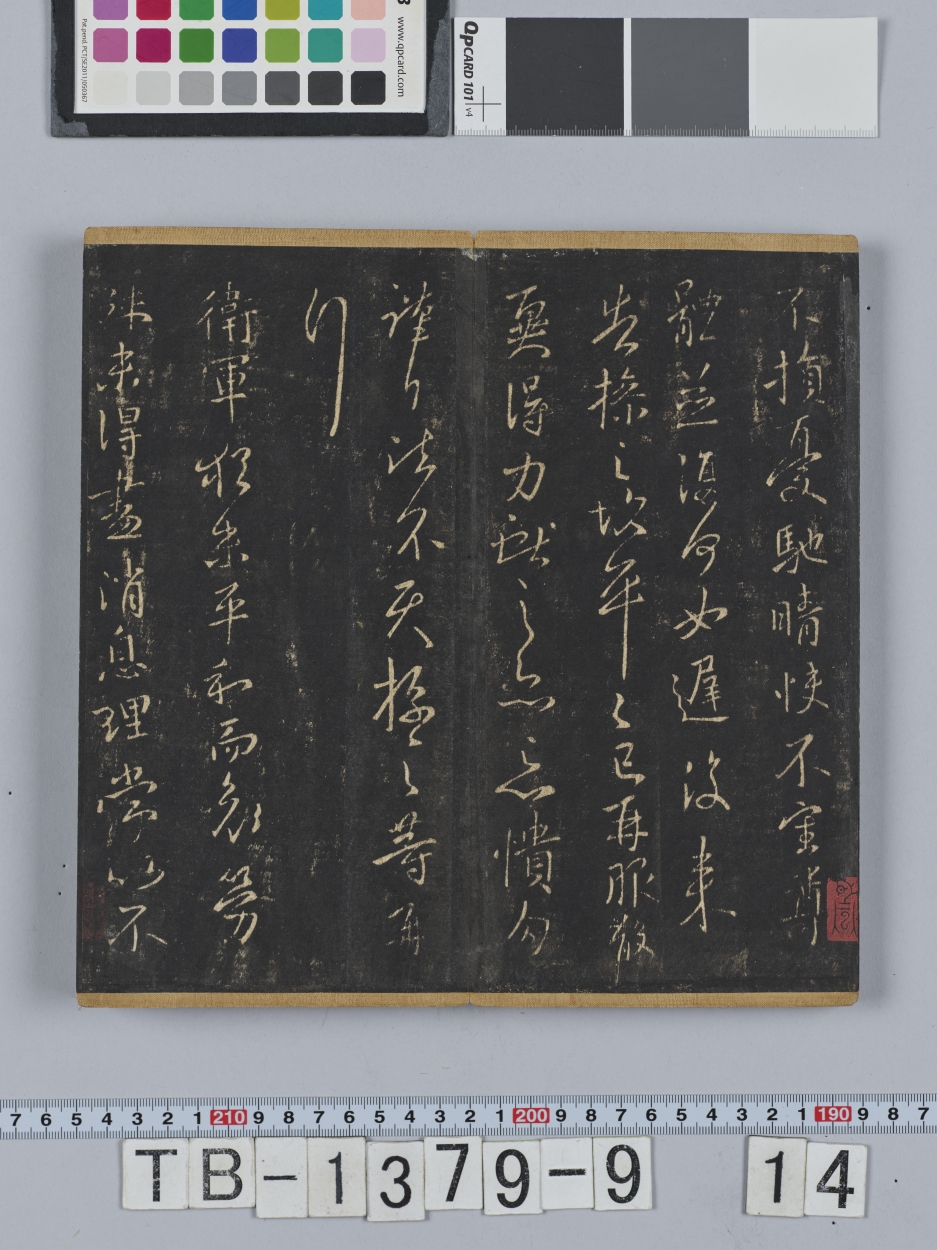 www.qpcard.com
Pat.pend. PCT/SE2011/050367
QpCARD 101 v4
不損憂馳晴快不審尊
體並復何如遲復承
告操之故平之已再服散
冀得力獻之亦惡憒勿
謹白 不 操之等再
衛軍猶未平和而哀勞
殊未得盡消息理常以不
7 6 5 4 3 2 1 210 9 8 7 6 5 4 3 2 1 200 9 8 7 6 5 4 3 2 1 190 9 8 7
TB-1379-9 14